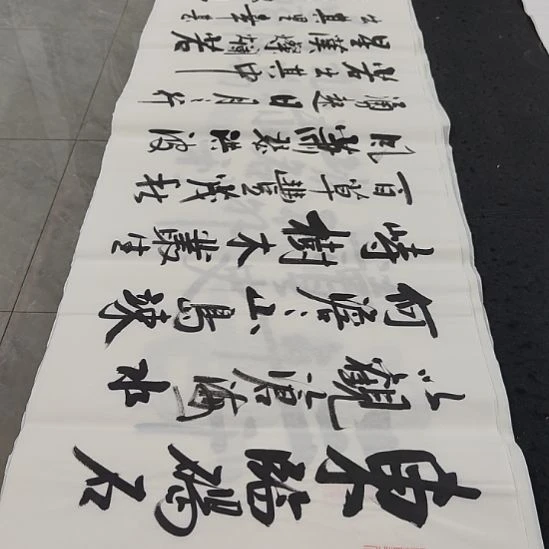 東臨碣石
以觀滄海水
何澹澹山島竦
峙樹木叢生
百草豐茂秋
風蕭瑟洪波
湧起日月之行
若出其中
星漢燦爛若
出其里幸甚